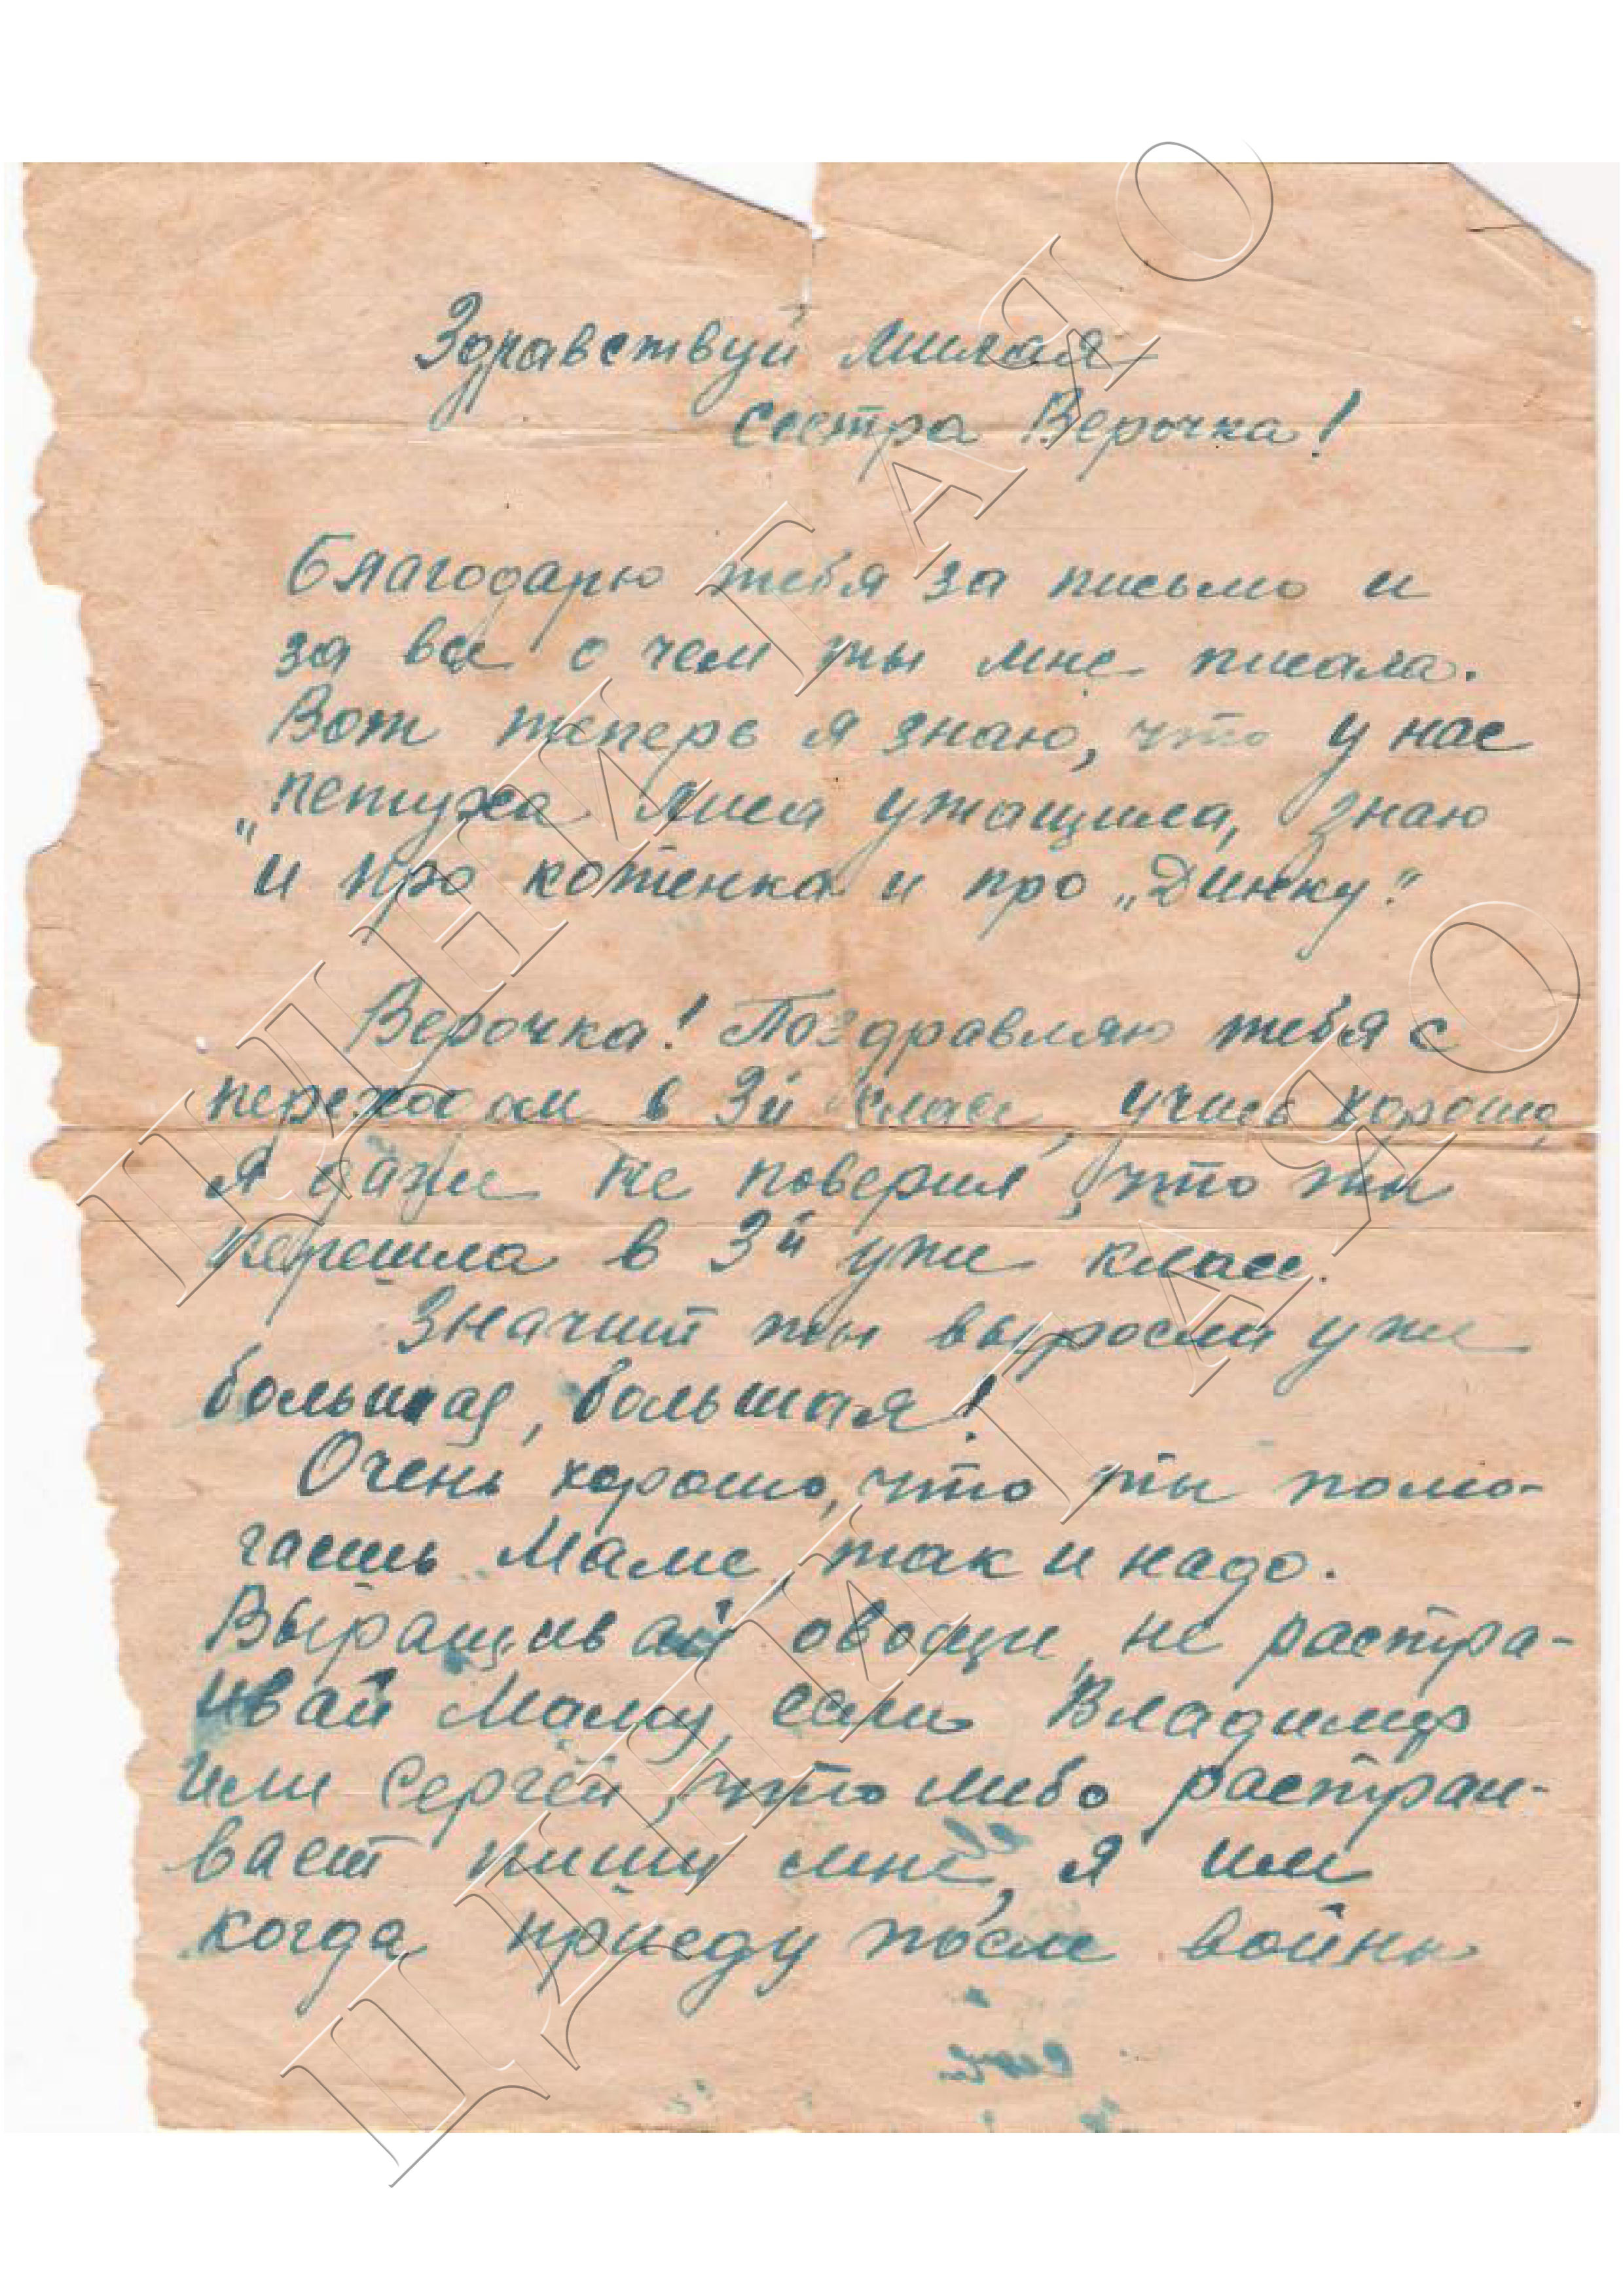 Здравствуй милая
сестра Верочка!
Благодарю тебя за письмо и
за все о чем ты мне писала.
Вот теперь я знаю, что у нас
"петуха лиса утащила, знаю
и про котенка и про „Динку".
Верочка! Поздравляю тебя с
переходом в 3й класс, учись хорошо,
Я даже не поверил, что ты
перешла в 3й уже класс.
Значит ты выросла уже
большая, большая!
Очень хорошо, что ты помо-
гаешь Маме, так и надо.
Выращивай овощи, не растра-
ивай Маму, если Владимир
или Сергей, что либо растраи-
вает пиши мне, я им
когда приеду после войны
ЦДНИ ГАЯО
ЦДНИ ГАЯО